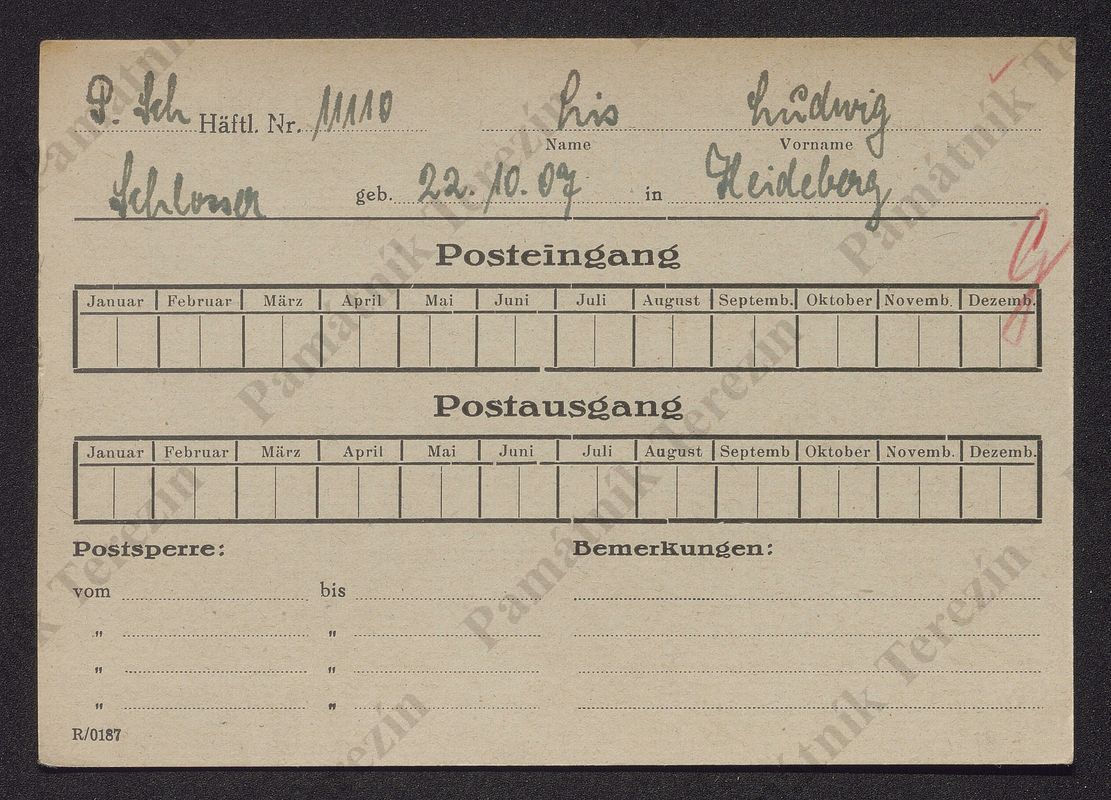 P. Sch Häftl. Nr. 11110 Lis Ludwig
Name Vorname
Schlosser geb. 22. 10. 07 in Heideberg
Posteingang
Januar Februar März April Mai Juni Juli August Septemb. Oktober Novemb. Dezemb.
Postausgang
Januar Februar März April Mai Juni Juli August Septemb Oktober Novemb. Dezemb.
Postsperre: Bemerkungen:
vom bis
" "
" "
" "
R/0187
Památník Terezín